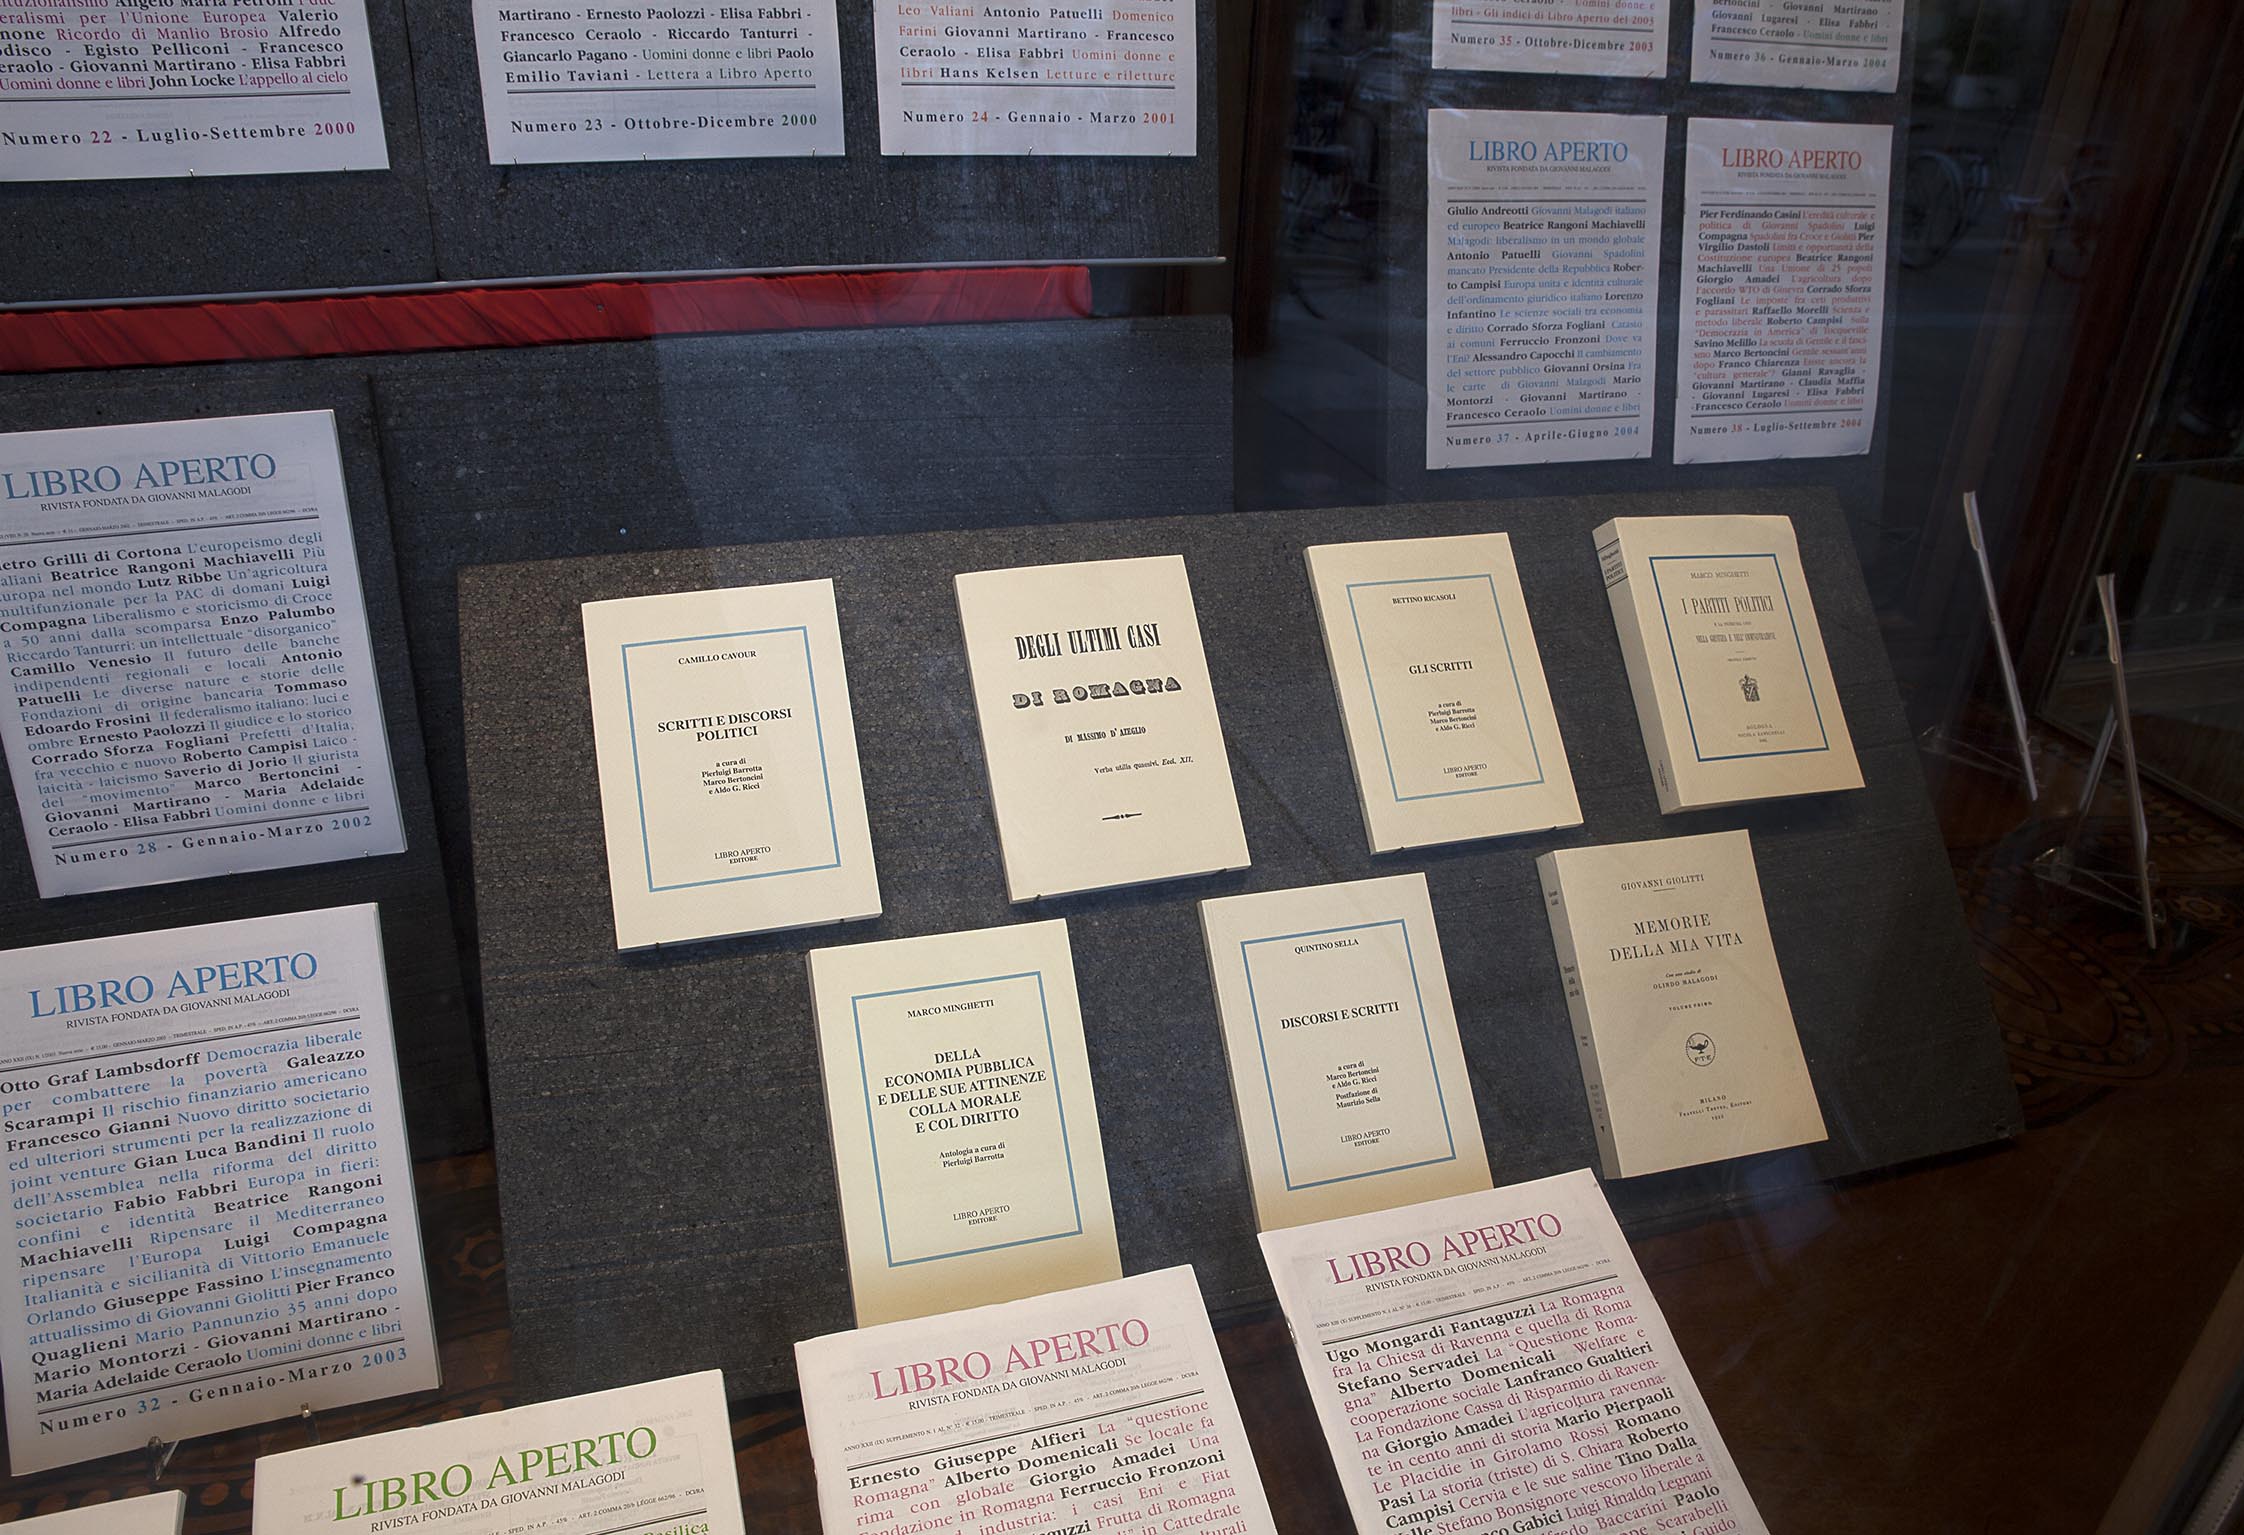 Martirano - Ernesto Paolozzi - Elisa Fabbri -
Francesco Ceraolo - Riccardo Tanturri -
Giancarlo Pagano - Uomini donne e libri Paolo
Emilio Taviani - Lettera a Libro Aperto
Numero 23 - Ottobre-Dicembre 2000
eralismi per l'Unione Europea Valerio
none Ricordo di Manlio Brosio Alfredo
odisco - Egisto Pelliconi - Francesco
eraolo - Giovanni Martirano - Elisa Fabbri
Uomini donne e libri John Locke L'appello al cielo
Numero 22 - Luglio-Settembre 2000
Leo Valiani Antonio Patuelli Domenico
Farini Giovanni Martirano - Francesco
Ceraolo - Elisa Fabbri Uomini donne e
libri Hans Kelsen Letture e riletture
Numero 24 - Gennaio - Marzo 2001
libri - Gli indici di Libro Aperto del 2003
Numero 35 - Ottobre-Dicembre 2003
Giovanni Lugaresi - Elisa Fabbri
Francesco Ceraolo - Uomini donne e libri
Numero 36 - Gennaio-Marzo 2004
LIBRO APERTO
RIVISTA FONDATA DA GIOVANNI MALAGODI
Giulio Andreotti Giovanni Malagodi italiano
ed europeo Beatrice Rangoni Machiavelli
Malagodi: liberalismo in un mondo globale
Antonio Patuelli Giovanni Spadolini
mancato Presidente della Repubblica Rober-
to Campisi Europa unita e identità culturale
dell'ordinamento giuridico italiano Lorenzo
Infantino Le scienze sociali tra economia
e diritto Corrado Sforza Fogliani Catasto
ai comuni Ferruccio Fronzoni Dove va
l'Eni? Alessandro Capocchi Il cambiamento
del settore pubblico Giovanni Orsina Fra
le carte di Giovanni Malagodi Mario
Montorzi - Giovanni Martirano -
Francesco Ceraolo Uomini donne e libri
Numero 37 - Aprile-Giugno 2004
LIBRO APERTO
RIVISTA FONDATA DA GIOVANNI MALAGODI
Pier Ferdinando Casini L'eredità culturale e
politica di Giovanni Spadolini Luigi
Compagna Spadolini fra Croce e Giolitti Pier
Virgilio Dastoli Limiti e opportunità della
Costituzione europea Beatrice Rangoni
Machiavelli Una Unione di 25 popoli
Giorgio Amadei L'agricoltura dopo
l'accordo WTO di Ginevra Corrado Sforza
Fogliani Le imposte fra ceti produttivi
e parassitari Raffaello Morelli Scienza e
metodo liberale Roberto Campisi Sulla
"Democrazia in America" di Tocqueville
Savino Melillo La scuola di Gentile e il fasci-
smo Marco Bertoncini Gentile sessant'anni
dopo Franco Chiarenza Esiste ancora la
"cultura generale"? Gianni Ravaglia -
Giovanni Martirano - Claudia Maffia
- Giovanni Lugaresi - Elisa Fabbri
-Francesco Ceraolo Uomini donne e libri
Numero 38 - Luglio-Settembre 2004
LIBRO APERTO
RIVISTA FONDATA DA GIOVANNI MALAGODI
ietro Grilli di Cortona L'europeismo degli
aliani Beatrice Rangoni Machiavelli Più
Europa nel mondo Lutz Ribbe Un'agricoltura
multifunzionale per la PAC di domani Luigi
Compagna Liberalismo e storicismo di Croce
a 50 anni dalla scomparsa Enzo Palumbo
Riccardo Tanturri: un intellettuale "disorganico"
Camillo Venesio Il futuro delle banche
indipendenti regionali e locali Antonio
Patuelli Le diverse nature e storie delle
Fondazioni di origine bancaria Tommaso
Edoardo Frosini Il federalismo italiano: luci e
ombre Ernesto Paolozzi Il giudice e lo storico
Corrado Sforza Fogliani Prefetti d'Italia,
fra vecchio e nuovo Roberto Campisi Laico -
laicità - laicismo Saverio di Jorio Il giurista
del "movimento" Marco Bertoncini -
Giovanni Martirano - Maria Adelaide
Ceraolo - Elisa Fabbri Uomini donne e libri
Numero 28 - Gennaio-Marzo 2002
CAMILLO CAVOUR
SCRITTI E DISCORSI
POLITICI
a cura di
Pierluigi Barrotta
Marco Bertoncini
e Aldo G. Ricci
LIBRO APERTO
EDITORE
DEGLI ULTIMI CASI
DI ROMAGNA
DI MASSIMO D'AZEGLIO
Verba utilia quaesivi. Eccl. XII.
BETTINO RICASOLI
GLI SCRITTI
a cura di
Pierluigi Barrotta
Marco Bertoncini
e Aldo G. Ricci
LIBRO APERTO
EDITORE
Minghetti
I PARTITI
POLITICI
MARCO MINGHETTI
I PARTITI POLITICI
NELLA GIUSTIZIA E NELL'AMMINISTRAZIONE
BOLOGNA
NICOLA ZANICHELLI
MARCO MINGHETTI
DELLA
ECONOMIA PUBBLICA
E DELLE SUE ATTINENZE
COLLA MORALE
E COL DIRITTO
Antologia a cura di
Pierluigi Barrotta
LIBRO APERTO
EDITORE
QUINTINO SELLA
DISCORSI E SCRITTI
a cura di
Marco Bertoncini
e Aldo G. Ricci
Postfazione di
Maurizio Sella
LIBRO APERTO
EDITORE
GIOVANNI GIOLITTI
MEMORIE
DELLA MIA VITA
Con uno studio di
OLINDO MALAGODI
VOLUME PRIMO
F·T·E
MILANO
Fratelli Treves, Editori
1922
LIBRO APERTO
RIVISTA FONDATA DA GIOVANNI MALAGODI
Otto Graf Lambsdorff Democrazia liberale
per combattere la povertà Galeazzo
Scarampi Il rischio finanziario americano
Francesco Gianni Nuovo diritto societario
ed ulteriori strumenti per la realizzazione di
joint venture Gian Luca Bandini Il ruolo
dell'Assemblea nella riforma del diritto
societario Fabio Fabbri Europa in fieri:
confini e identità Beatrice Rangoni
Machiavelli Ripensare il Mediterraneo
ripensare l'Europa Luigi Compagna
Italianità e sicilianità di Vittorio Emanuele
Orlando Giuseppe Fassino L'insegnamento
attualissimo di Giovanni Giolitti Pier Franco
Quaglieni Mario Pannunzio 35 anni dopo
Mario Montorzi - Giovanni Martirano -
Maria Adelaide Ceraolo Uomini donne e libri
Numero 32 - Gennaio-Marzo 2003
LIBRO APERTO
RIVISTA FONDATA DA GIOVANNI MALAGODI
Basilica
LIBRO APERTO
RIVISTA FONDATA DA GIOVANNI MALAGODI
ANNO XXII (IX) SUPPLEMENTO N. 1 AL N° 32 - € 15,00 - TRIMESTRALE - SPED. IN A.P. - 45% - ART. 2 COMMA 20/b LEGGE 662/96 - DCURA
Ernesto Giuseppe Alfieri La "questione
Romagna" Alberto Domenicali Se locale fa
rima con globale Giorgio Amadei Una
Fondazione in Romagna Ferruccio Fronzoni
industria: i casi Eni e Fiat
Frutta di Romagna
in Cattedrale
LIBRO APERTO
RIVISTA FONDATA DA GIOVANNI MALAGODI
Ugo Mongardi Fantaguzzi La Romagna
fra la Chiesa di Ravenna e quella di Roma
Stefano Servadei La "Questione Roma-
gna" Alberto Domenicali Welfare e
cooperazione sociale Lanfranco Gualtieri
La Fondazione Cassa di Risparmio di Raven-
na Giorgio Amadei L'agricoltura ravenna-
te in cento anni di storia Mario Pierpaoli
Le Placidie in Girolamo Rossi Romano
Pasi La storia (triste) di S. Chiara Roberto
Campisi Cervia e le sue saline Tino Dalla
Valle Stefano Bonsignore vescovo liberale a
Gabici Luigi Rinaldo Legnani
Alfredo Baccarini Paolo
Scarabelli
Guido